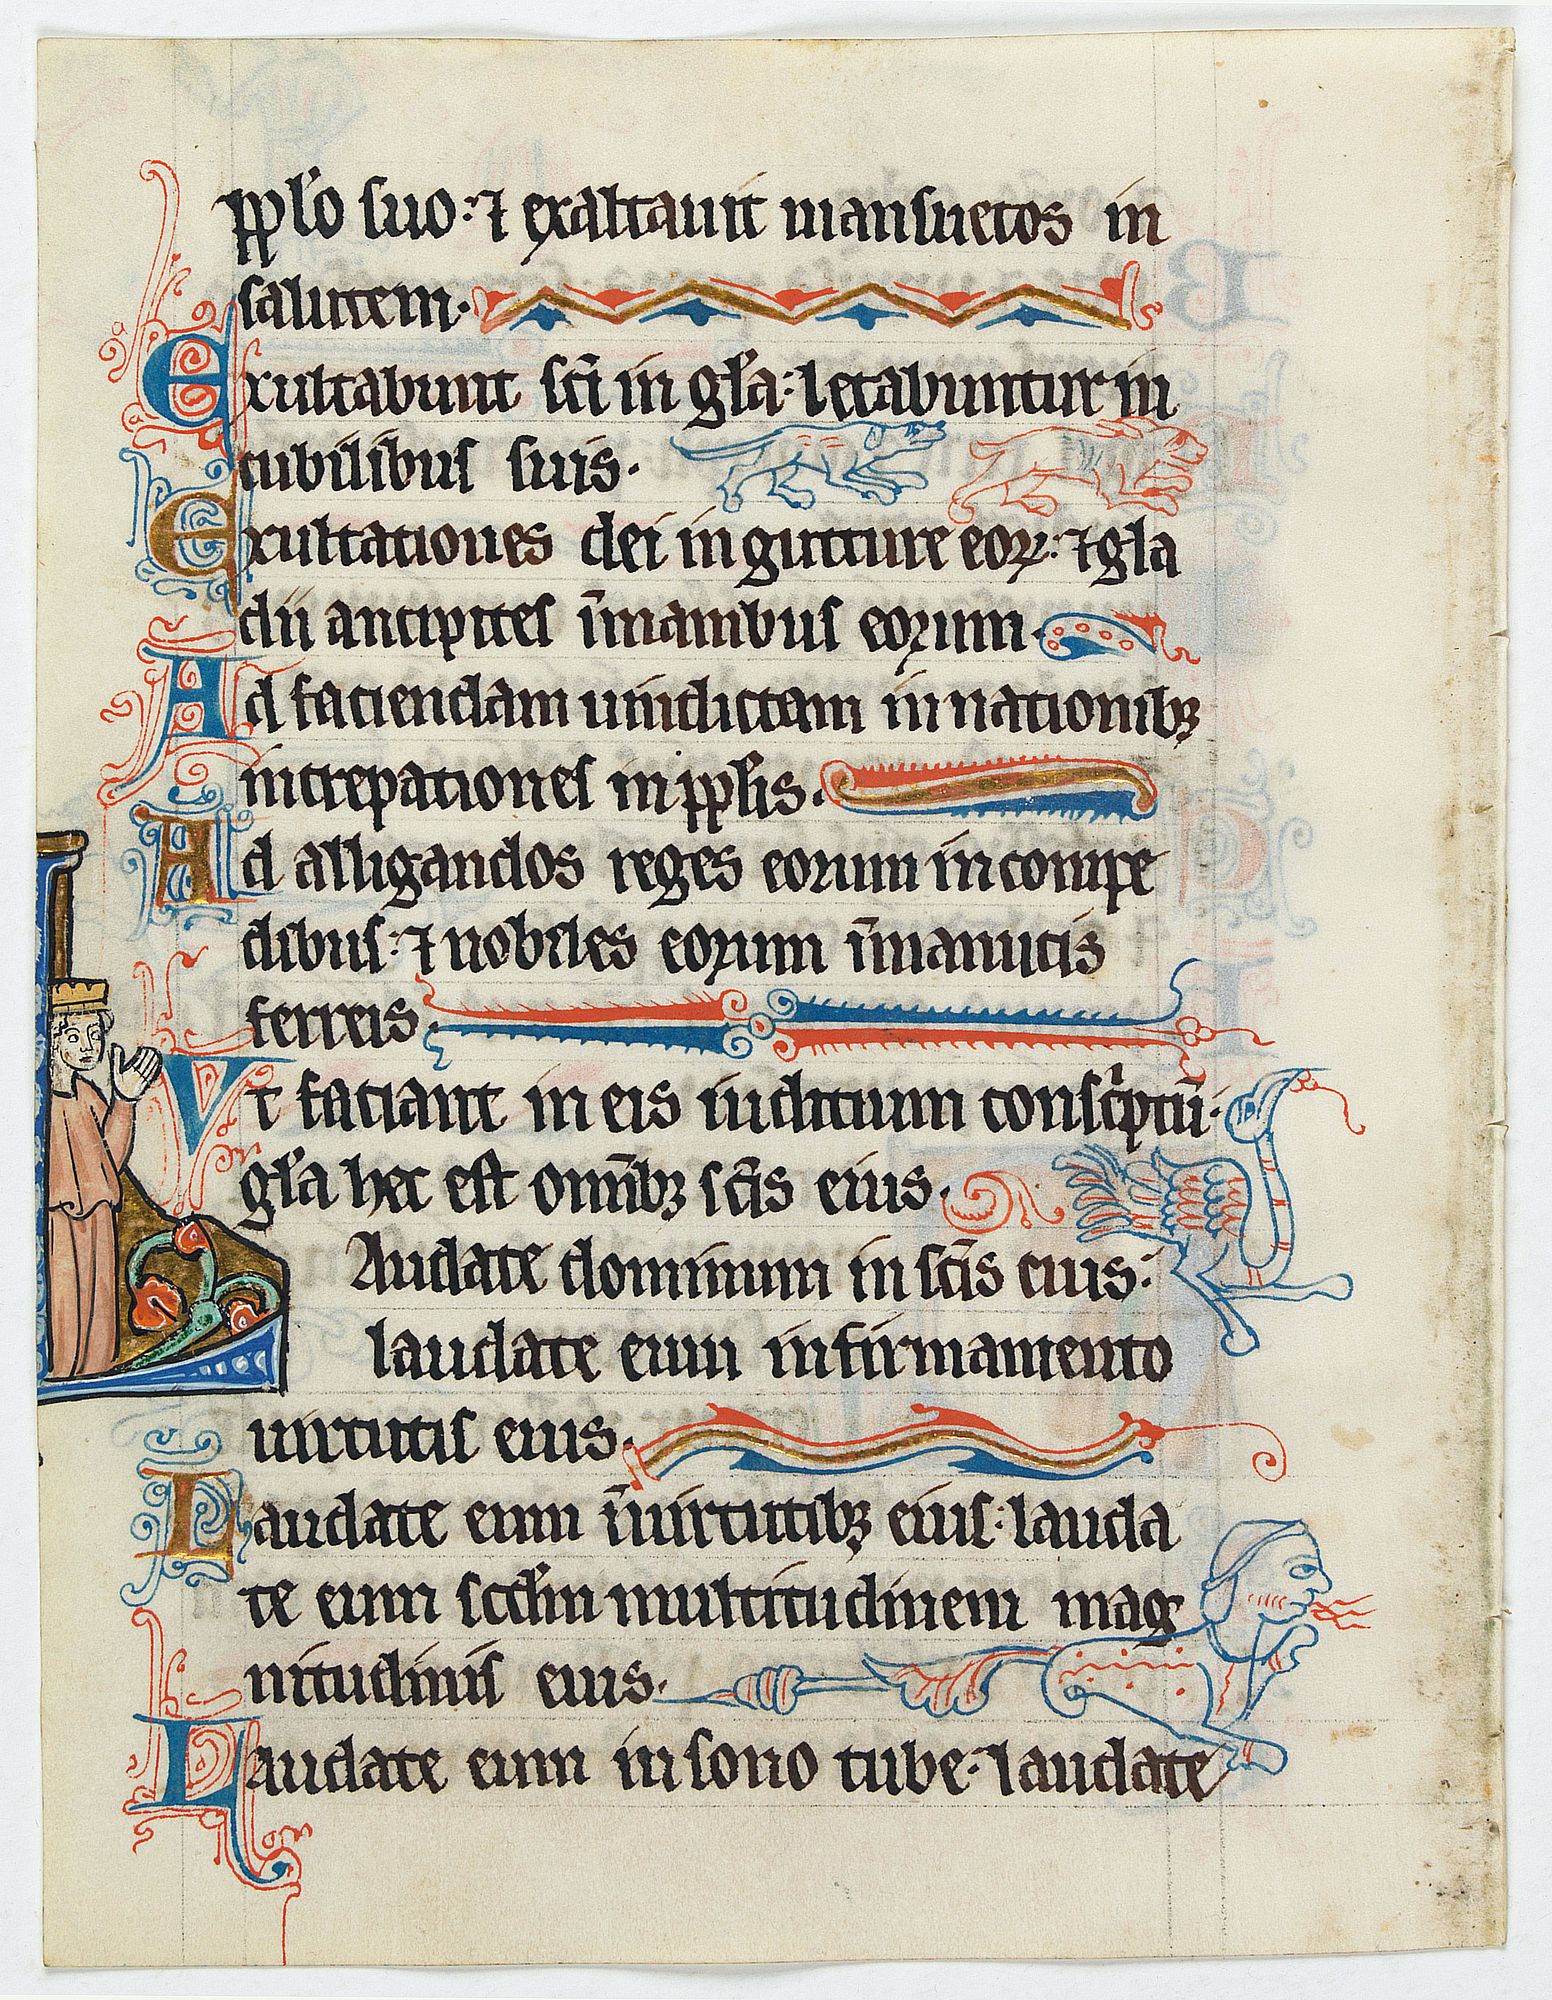 pplo suo: ⁊ exaltauit mansuetos in
salutem.
Exultabunt sc̄i in gl̄a: letabuntur in
cubilibus suis.
Exultationes dei in gutture eoꝝ: ⁊ gla
dii ancipites ī manibus eorum.
Ad faciendam uindictam in nationibꝫ
increpationes in pp̄lis.
Ad alligandos reges eorum in compe
dibus: ⁊ nobiles eorum ī manicis
ferreis.
Vt faciant in eis iudicium conscͥptū.
gl̄a hec est om̄ibꝫ sc̄is eius.
Laudate dominum in sc̄is eius:
laudate eum in firmamento
uirtutis eius.
Laudate eum ī uirtutibꝫ eius: lauda
te eum scd̄m multitudinem mag
nitudinis eius.
Laudate eum in sono tube: laudate